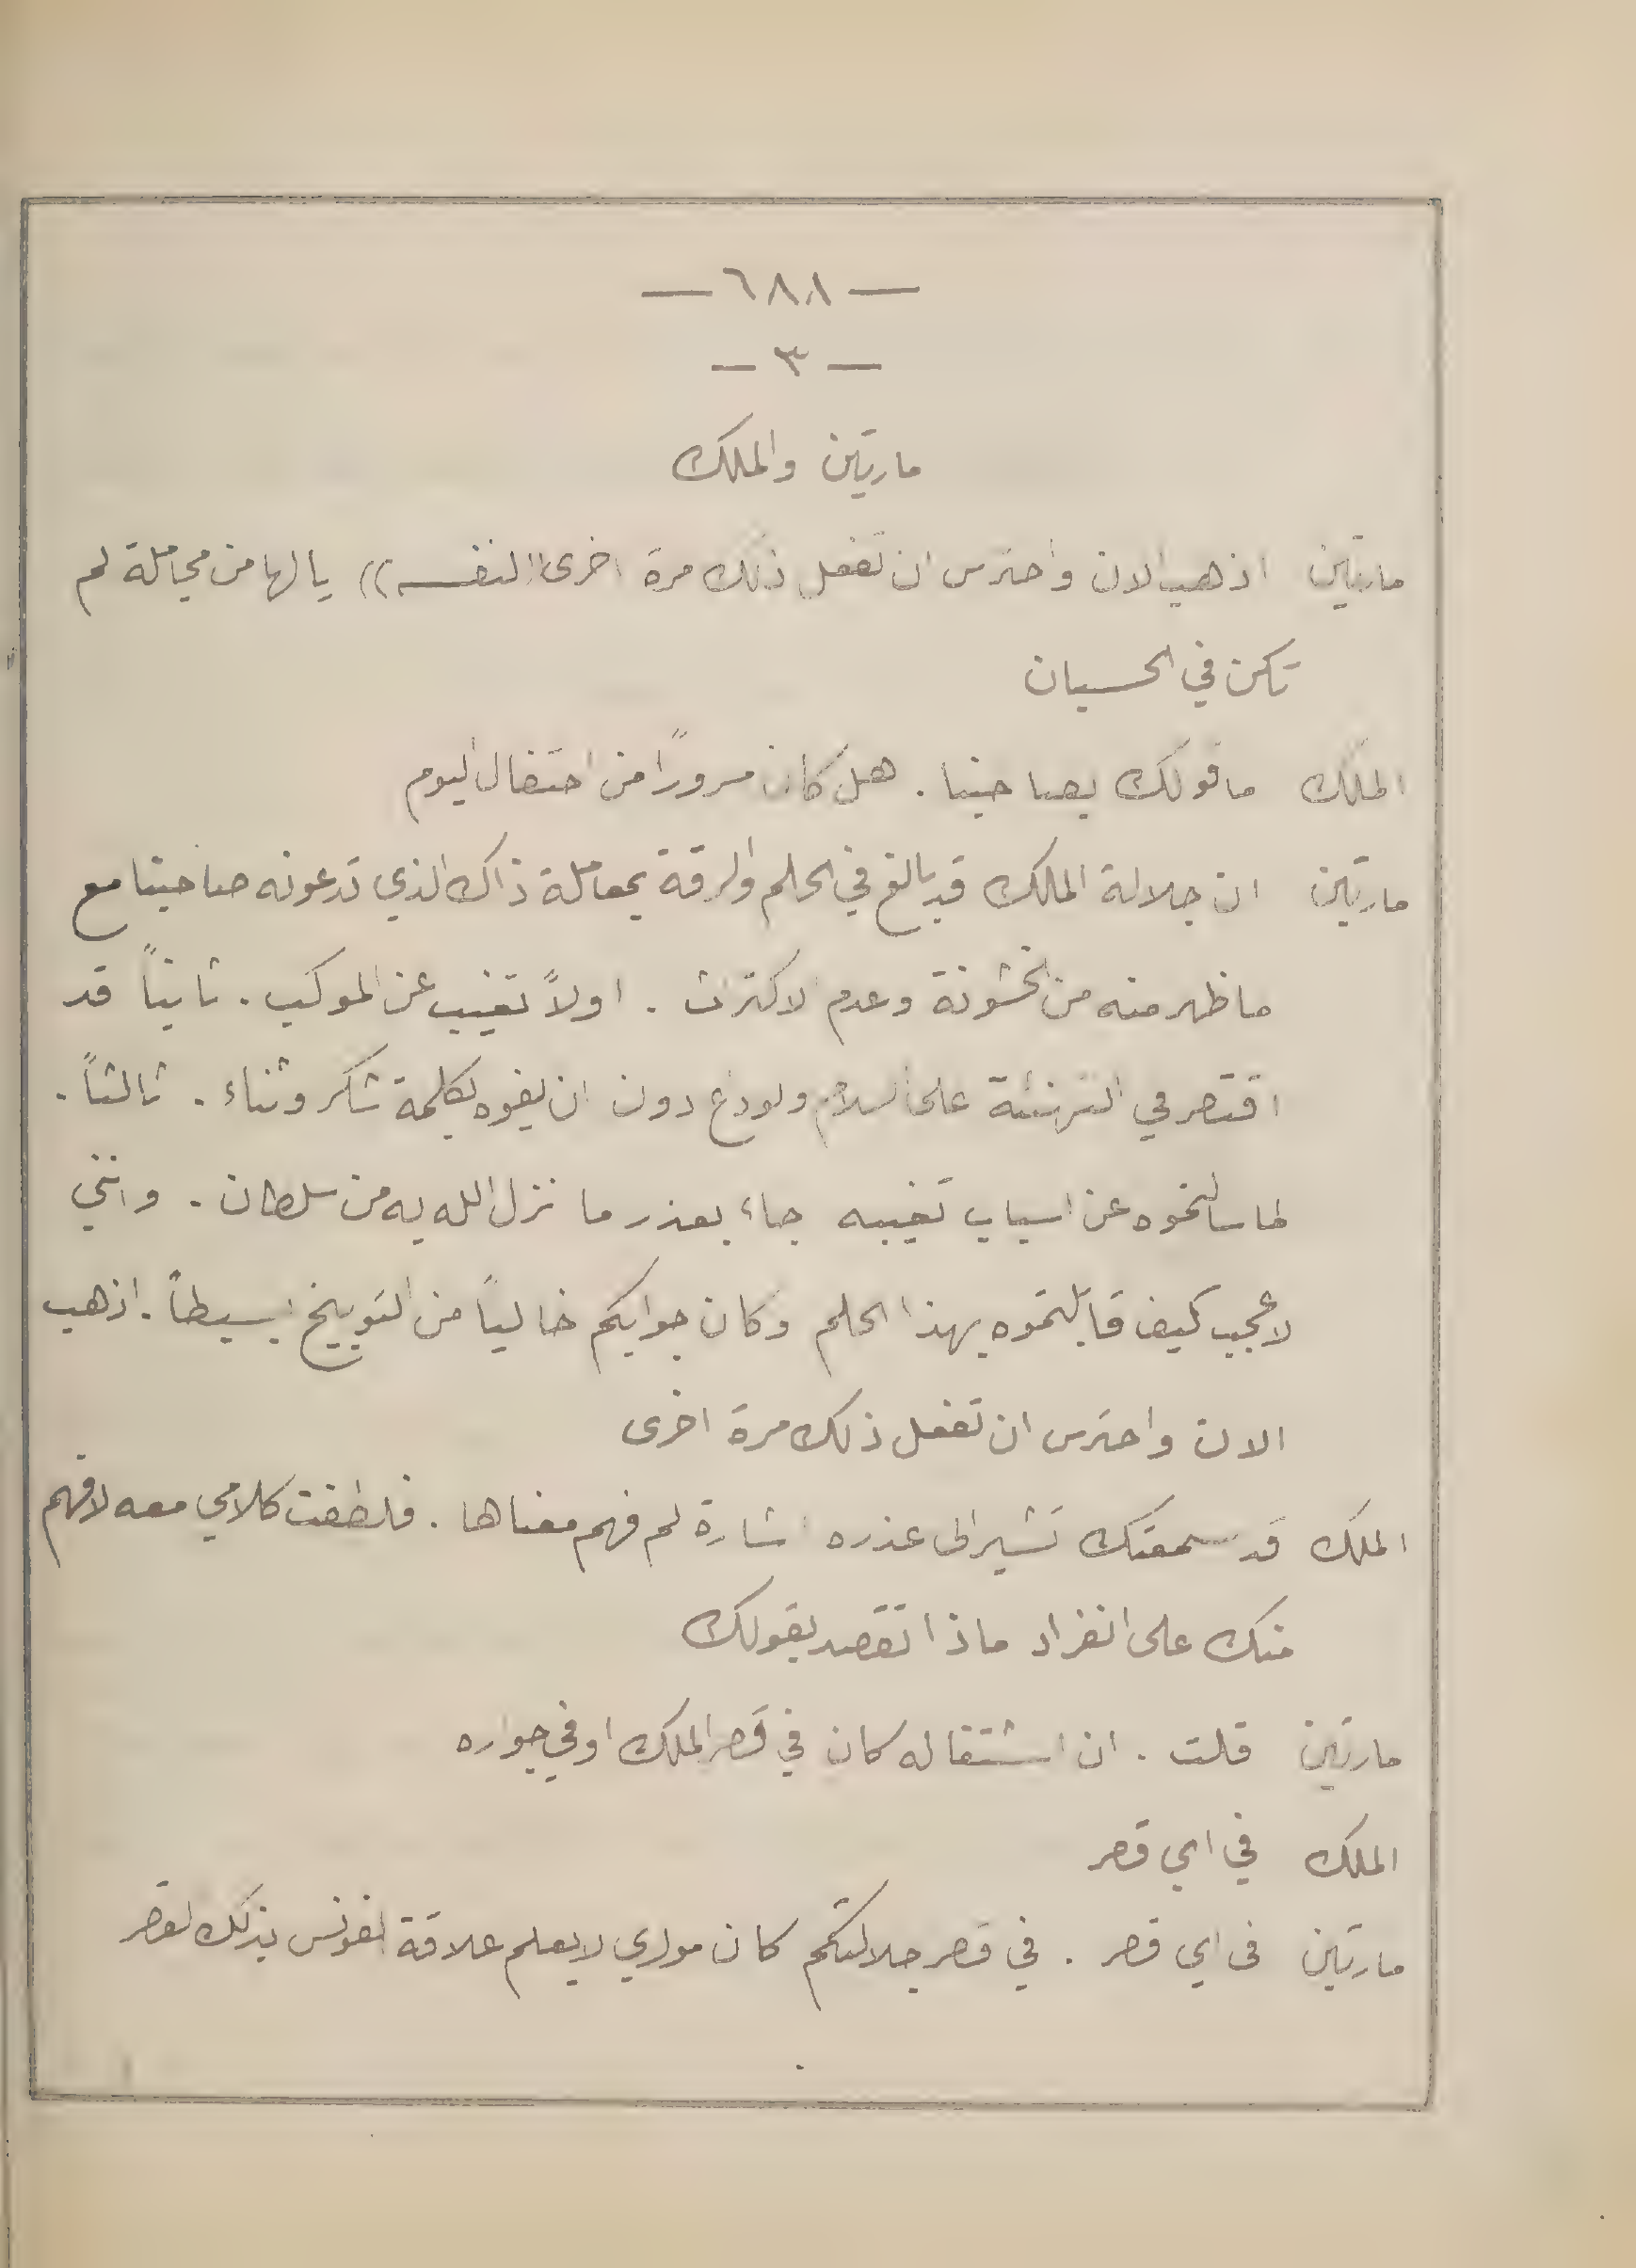 — ٦٨٨ —
— ٣ —
مارتين والملك
مارتين اذهب الان واحترس ان تفعل ذلك مرة اخرى ((لنفسه)) يا لها من مجاملة لم
تكن في الحسبان
الملك ما قولك بصاحبنا . هل كان مسروراً من احتفال اليوم
مارتين ان جلالة الملك قد بالغ في الحلم والرقة بمعاملة ذاك الذي تدعونه صاحبنا مع
ما ظهر منه من الخشونة وعدم الاكتراث . اولاً تغيب عن الموكب . ثانياً قد
اقتصر في التهنئة على السلام ولوداع دون ان يفوه بكلمة شكر وثناء . ثالثاً .
لما سالتموه عن اسباب تغيبه جاء بعذر ما نزل الله به من سلطان . وانني
لاعجب كيف قابلتموه بهذا الحلم وكان جوابكم خالياً من التوبيخ بسيطاً . اذهب
الان واحترس ان تفعل ذلك مرة اخرى
الملك قد سمعتك تشير الى عذره اشارة لم فهم معناها . فلطفت كلامي معه لافهم
منك على انفراد ماذا تقصد بقولك
مارتين قلت . ان اشتغاله كان في قصر الملك او في جواره
الملك في اي قصر
مارتين فى اي قصر . في قصر جلالتكم كان مولاي لا يعلم علاقة الفونس بذلك القصر